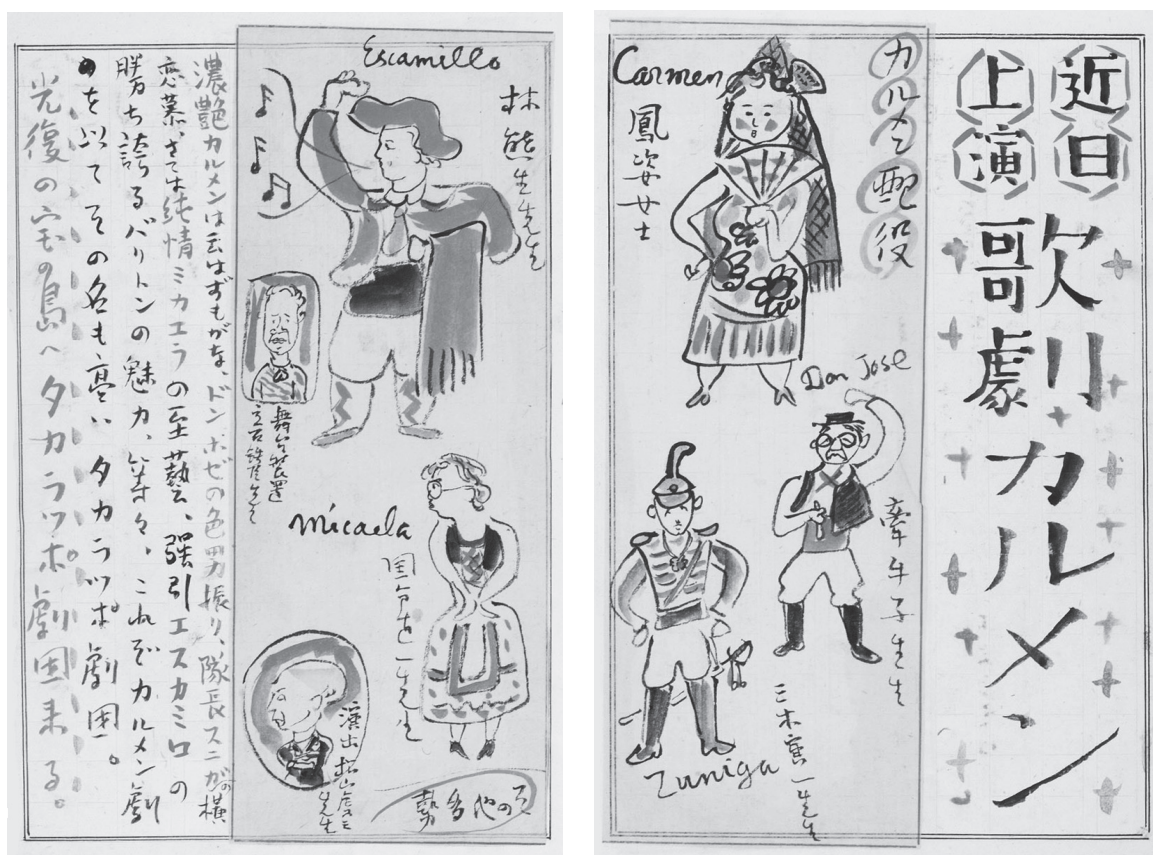 近日
上演
歌劇カルメン
カルメン配役
Carmen
鳳姿女士
Don José
牽牛子先生
Zuniga
三木寅一先生
Escamillo
林熊生先生
舞台装置
立石鉄臣先生
Micaela
国分直一先生
演出 松山虔三
先生
其の他多勢
濃艶カルメンは云はずもがな、ドンホゼの色男振り、隊長スニガの横
恋慕、さては純情ミカエラの至藝、強引エスカミロの
勝ち誇るバリトンの魅力、等々、これぞカルメン劇
を以てその名も高いタカラツポ劇団。
光復の宝の島へタカラツポ劇団来る。